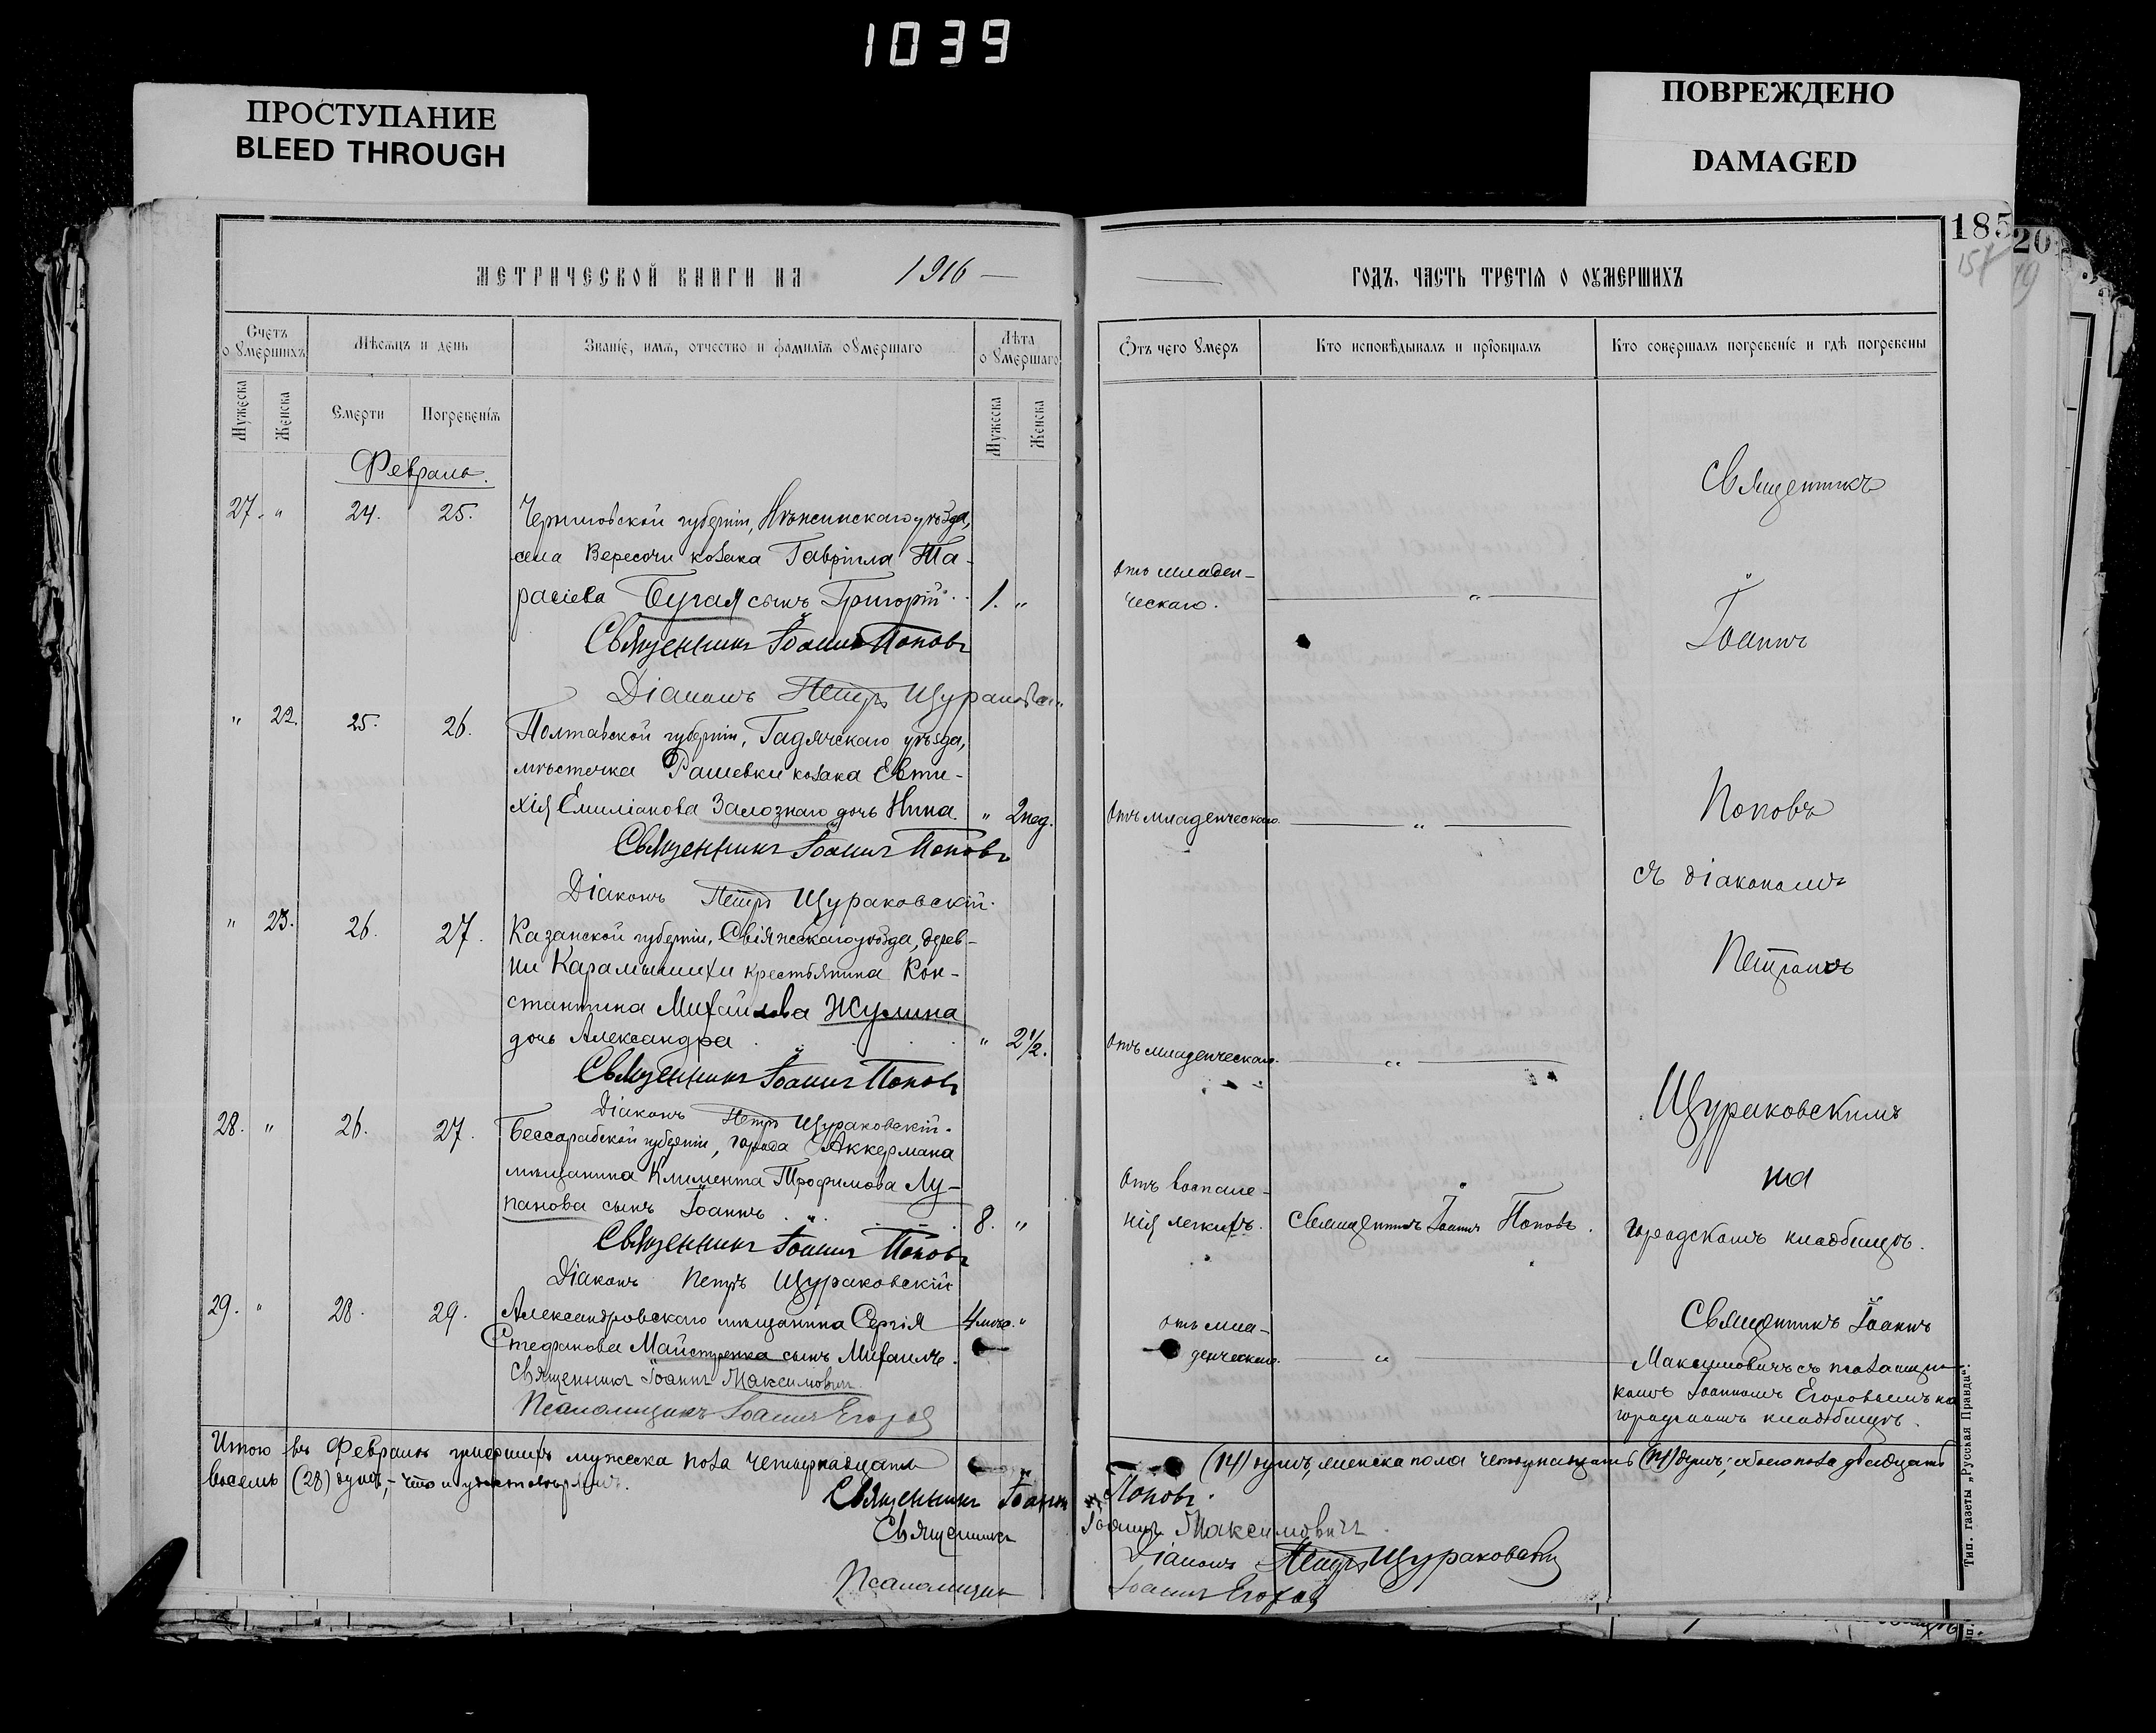 1039
ПРОСТУПАНИЕ
BLEED THROUGH
ПОВРЕЖДЕНО
DAMAGED
185
20
МЕТРИЧЕСКОЙ КНИГИ НА 1916
Счетъ о умершихъ
Мѣсяцъ и день
Званіе, имя, отчество и фамилія умершаго
Лѣта умершаго
Мужеска
Женска
Смерти
Погребенія
Мужеска
Женска
Февраль.
27. " 24. 25. Черниговской губерніи, Нѣжинскаго уѣзда,
села Вересочи козака Гавріила Та-
расіева Бугая сынъ Григорій 1. "
Священникъ Іоаннъ Поповъ
Діаконъ Петръ Щураковскій
" 22. 25. 26. Полтавской губерніи, Гадячскаго уѣзда,
мѣстечка Рашевки козака Евти-
хія Емиліанова Залознаго дочь Нина. " 2 нед.
Священникъ Іоаннъ Поповъ
Діаконъ Петръ Щураковскій.
" 23. 26. 27. Казанской губерніи, Свіяжскаго уѣзда, дерев-
ни Карамышихи крестьянина Кон-
стантина Михайлова Жулина
дочь Александра " 2 1/2.
Священникъ Іоаннъ Поповъ
Діаконъ Петръ Щураковскій.
28. " 26. 27. Бессарабской губерніи, города Аккермана
мѣщанина Климента Трофимова Лу-
панова сынъ Іоаннъ 8. "
Священникъ Іоаннъ Поповъ
Діаконъ Петръ Щураковскій
29. " 28. 29. Александровскаго мѣщанина Сергія 4 мѣс. "
Стефанова Майстренка сынъ Михаилъ.
Священникъ Іоаннъ Максимовичъ
Псаломщикъ Іоаннъ Егоровъ
Итого въ Февралѣ умершихъ мужеска пола четырнадцать
восемь (28) душъ, - что и удостовѣряемъ.
Священникъ Іоаннъ
Священникъ
Псаломщикъ
ГОДЪ, ЧАСТЬ ТРЕТІЯ О УМЕРШИХЪ
Отъ чего умеръ
Кто исповѣдывалъ и пріобщалъ
Кто совершалъ погребеніе и гдѣ погребены
Священникъ
отъ младен-
ческаго. "
Іоаннъ
Поповъ
отъ младенческаго. "
съ діакономъ
Петромъ
отъ младенческаго. "
Щураковскимъ
на
отъ воспале-
нія легкихъ. Священникъ Іоаннъ Поповъ.
городскомъ кладбищѣ.
отъ мла-
денческаго. "
Священникъ Іоаннъ
Максимовичъ съ псаломщи-
комъ Іоанномъ Егоровымъ на
городскомъ кладбищѣ.
(14) душъ, женска пола четырнадцать (14) душъ; обоего пола двадцать
Поповъ.
Іоаннъ Максимовичъ.
Діаконъ Петръ Щураковскій
Іоаннъ Егоровъ
Тип. газеты „Русская Правда".